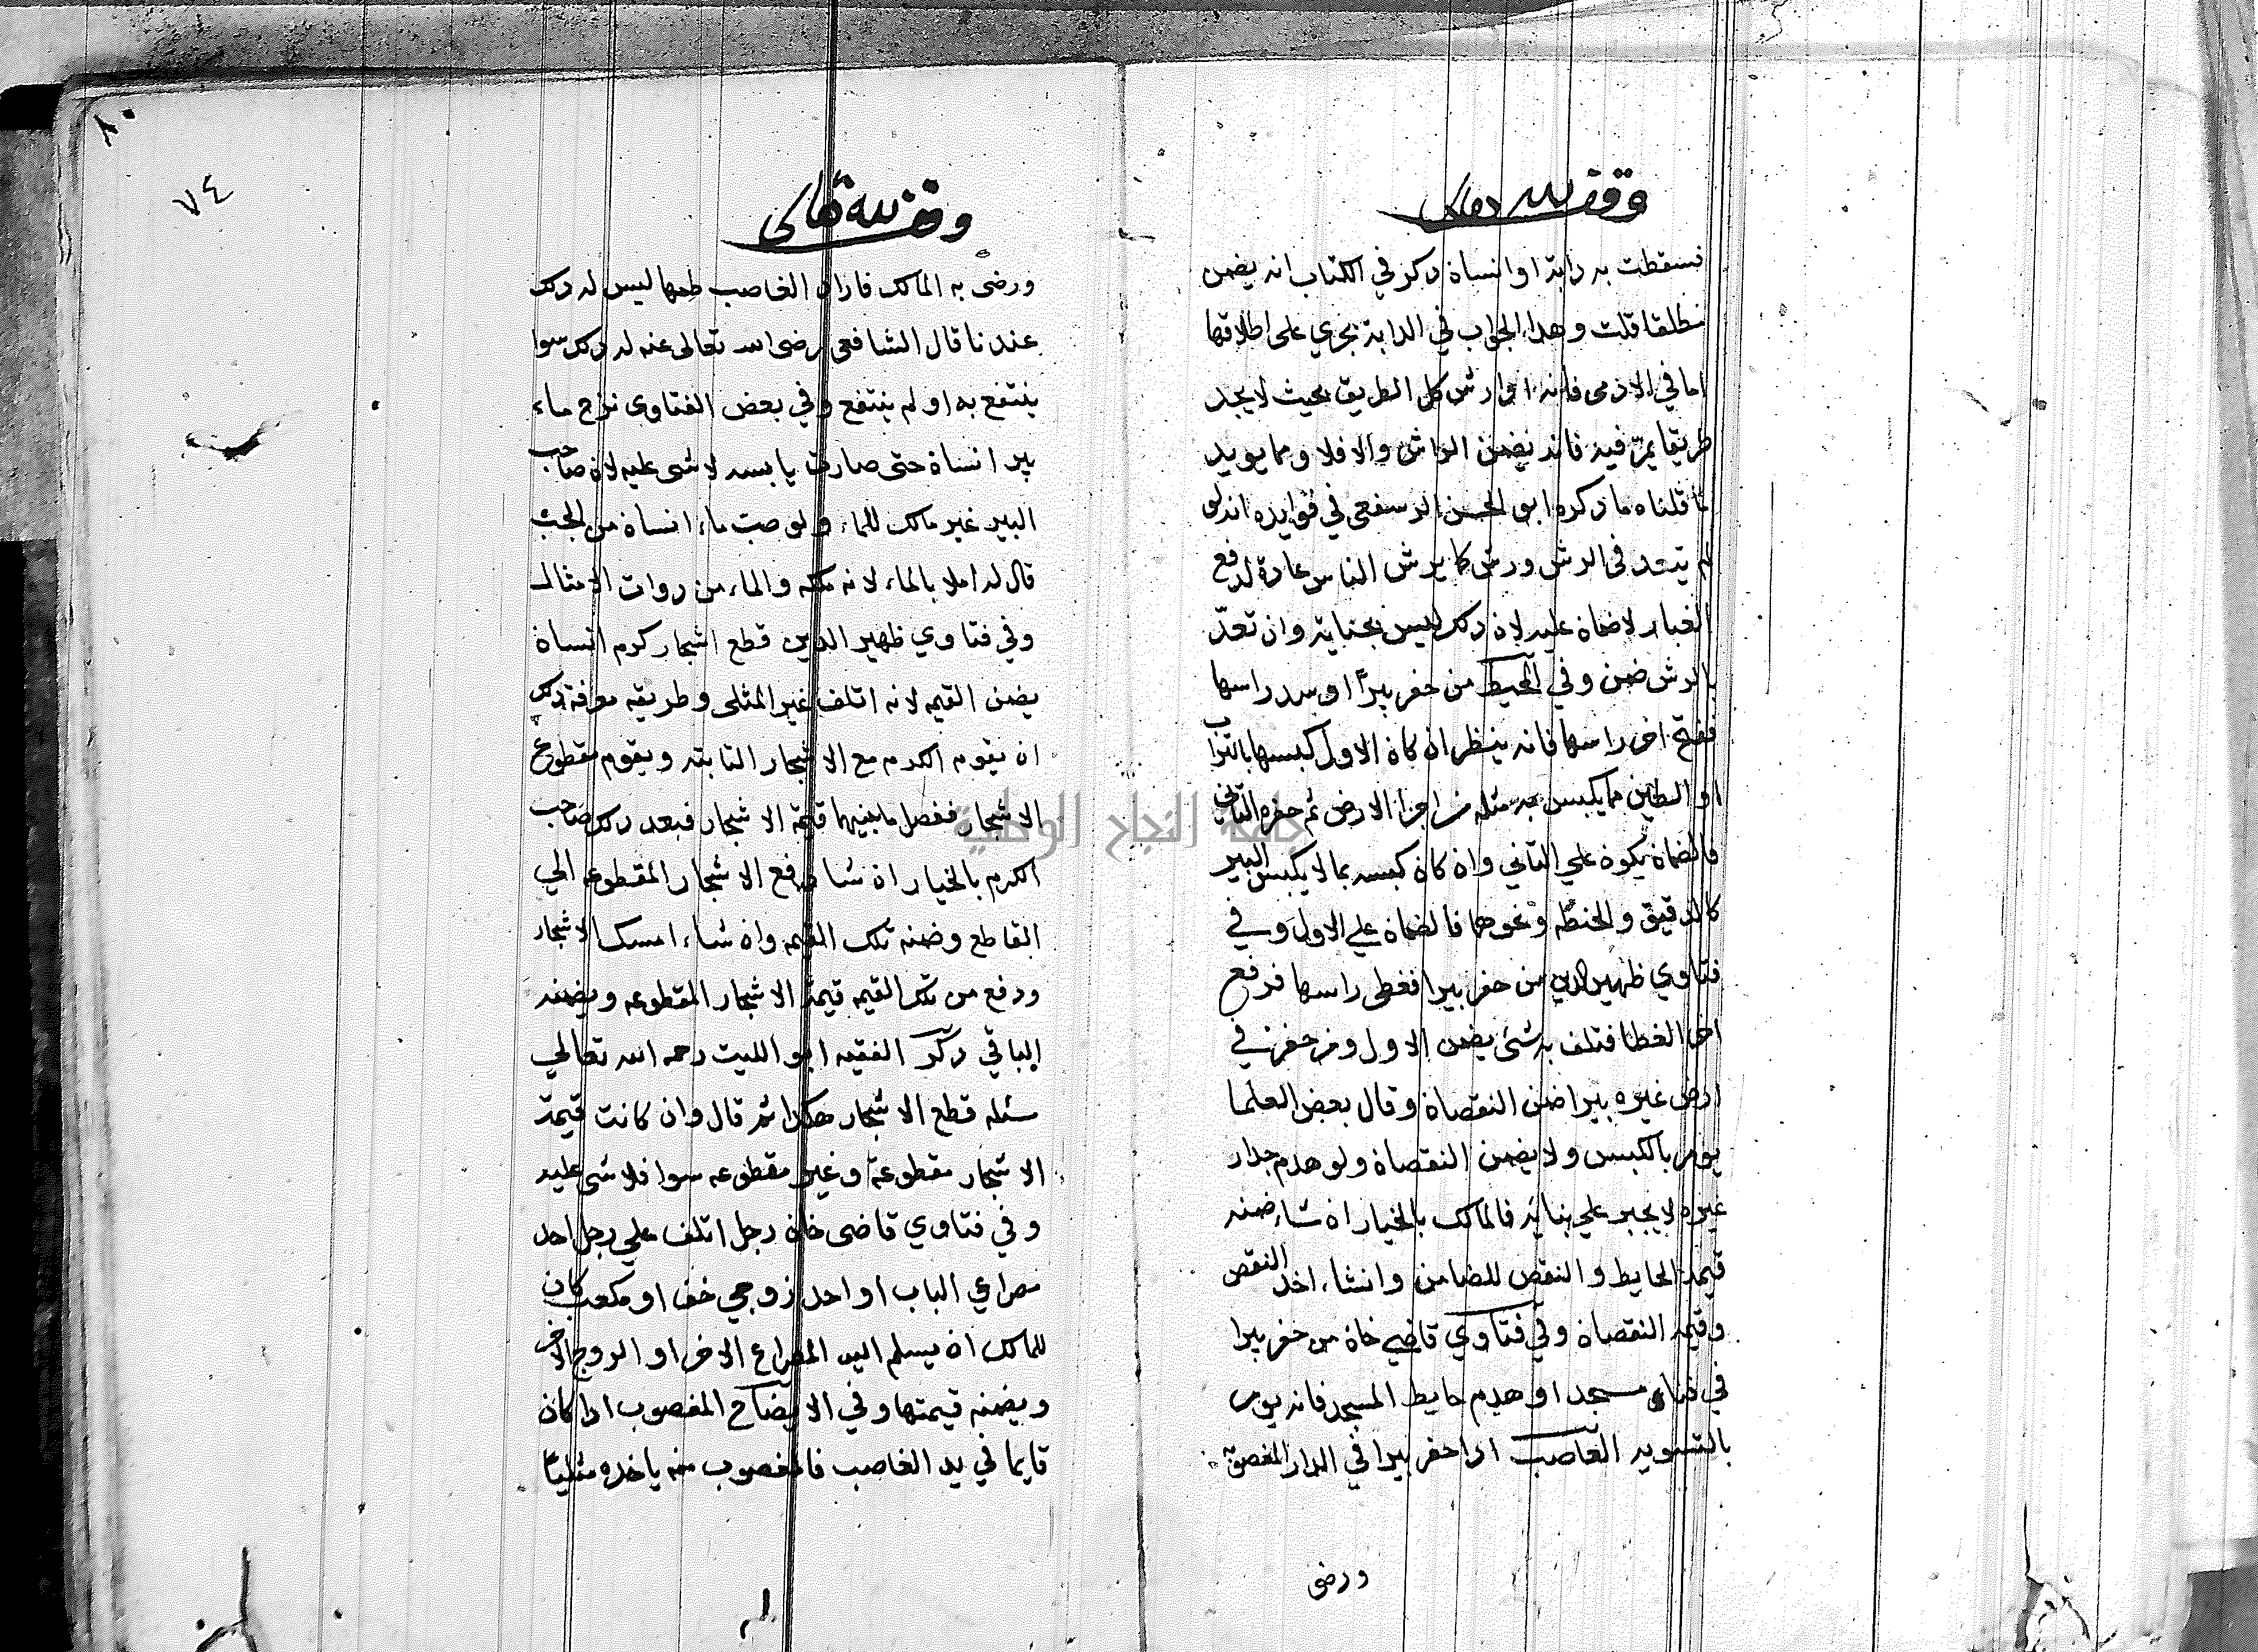 وقف لله تعالى
فسقطت به دابة او انساة ذكر في الكتاب انه يضمن
مطلقا قلت وهذا الجواب في الدابة يجري على اطلاقها
اما في الادمى فانه اذا رش كل الطريق بحيث لا يجد
طريقا يمرّ فيه فانه يضمن الراش والا فلا ومما يويد
ما قلناه ما ذكره ابو الحسن الرستغعى في فوايده انه لو
لم يتعد في الرش ورش كما يرش الناس عادة لدفع
الغبار لاضماة عليه لاة ذلك ليس بجناية وان تعدّ
بالرش ضمن وفي المحيط من حفر بيرًا او سد راسها
ففتح اخر راسها فانه ينظر ان كاة الاول كبسها بالتراب
او الطين مما يكبس به مثله من اجزا الارض ثم حفره الثاني
فالضماة يكوة علي الثاني واة كاة كبسه بما لا يكبس البير
كالدقيق والحنطه ونحوهما فالضماة علي الاول وفي
فتاوي ظهير الدين من حفر بيرا فغطى راسها فرفع
اخر الغطا فتلف به شئ يضمن الاول ومن حفر في
ارض غيره بيرا ضمن النقصاة وقال بعض العلما
يومر بالكبس ولا يضمن النقصاة ولو هدم جدار
غيره لا يجبر علي بنائه فالمالك بالخيار اة شاء ضمنه
قيمة الحايط والنقص للضامن وانشاء اخذ النقص
وقيمة النقصاة وفي فتاوي قاضي خاة من حفر بيرا
في فناء مسجد او هدم حايط المسجد فانه يومر
بالتسويه الغاصب اذا حفر بيرا في الدار المغصوبة
ورضى
٨٠
٧٤
وقف لله تعالى
ورضى به المالك فاراد الغاصب طمها ليس له ذلك
عندنا قال الشافعى رضى الله تعالى عنه له ذلك سوا
ينتفع به او لم ينتفع وفي بعض الفتاوى نزح ماء
بير انساة حتى صارت يابسه لا شى عليه لاة صاحب
البير غير مالك للماء ولو صب ماء انساة من الجب
قال له املا بالماء لانه ملكه والماء من ذوات الامثال
وفي فتاوي ظهير الدين قطع اشجار كرم انساة
يضمن القيمه لانه اتلف غير المثلى وطريقه معرفة ذلك
ان يقوم الكرم مع الاشجار النابته ويقوم مقطوع
الاشجار ففضل مابينهما قيمة الاشجار فبعد ذلك صاحب
الكرم بالخيار اة شا دفع الاشجار المقطوعه الي
القاطع وضمنه تلك القيمه واة شاء امسك الاشجار
ودفع من تلك القيمه قيمة الاشجار المقطوعه ويضمنه
الباقي ذكر الفقيه ابو الليث رحمه الله تعالي
مسئله قطع الاشجار هكذا ثم قال وان كانت قيمة
الاشجار مقطوعة وغير مقطوعه سوا فلا شى عليه
وفي فتاوي قاضى خاة رجل اتلف علي رجل احد
مصراعي الباب او احد زوجي خف او مكعب كان
للمالك اة يسلم اليه المصراع الاخر او الزوج الاخر
ويضمنه قيمتها وفي الايضاح المغصوب اذا كاة
قايما في يد الغاصب فالمغصوب منه ياخذه مثليًا